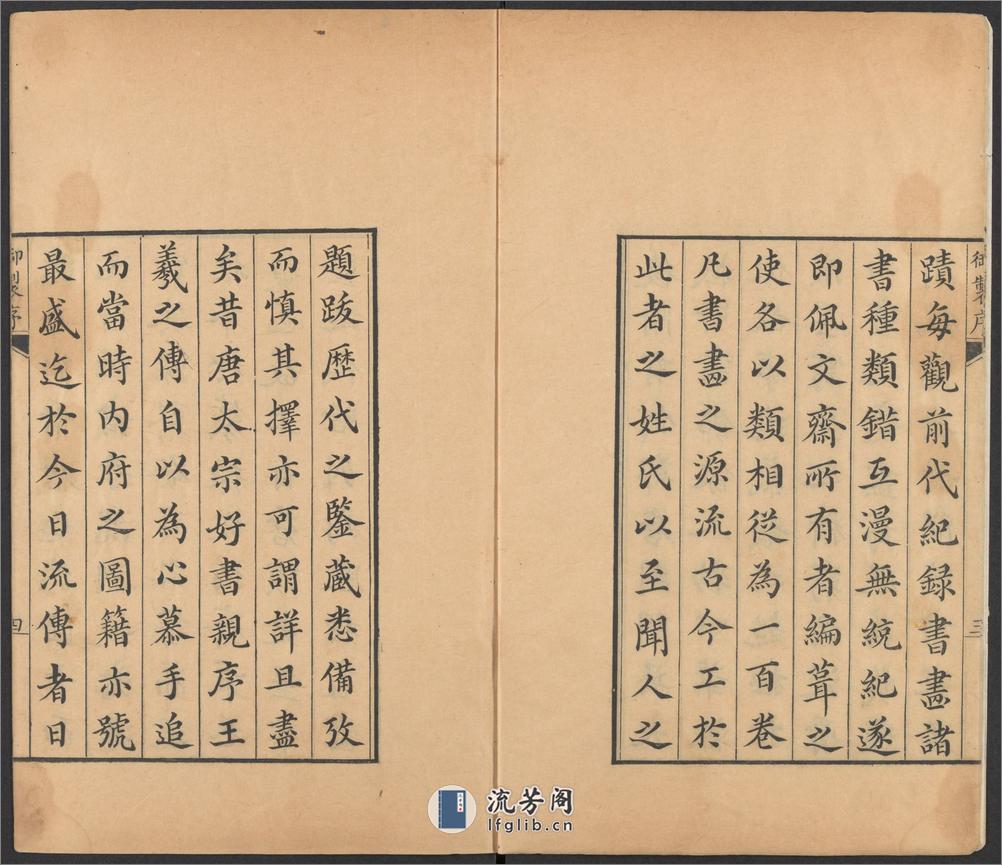 御製序
三
蹟每觀前代紀録書畫諸
書種類錯互漫無統紀遂
即佩文齋所有者編葺之
使各以類相從為一百卷
凡書畫之源流古今工於
此者之姓氏以至聞人之
題跋歷代之鑒藏悉備攷
而慎其擇亦可謂詳且盡
矣昔唐太宗好書親序王
羲之傳自以為心慕手追
而當時内府之圖籍亦號
最盛迄於今日流傳者日
御製序
四
流芳阁
lfglib.cn